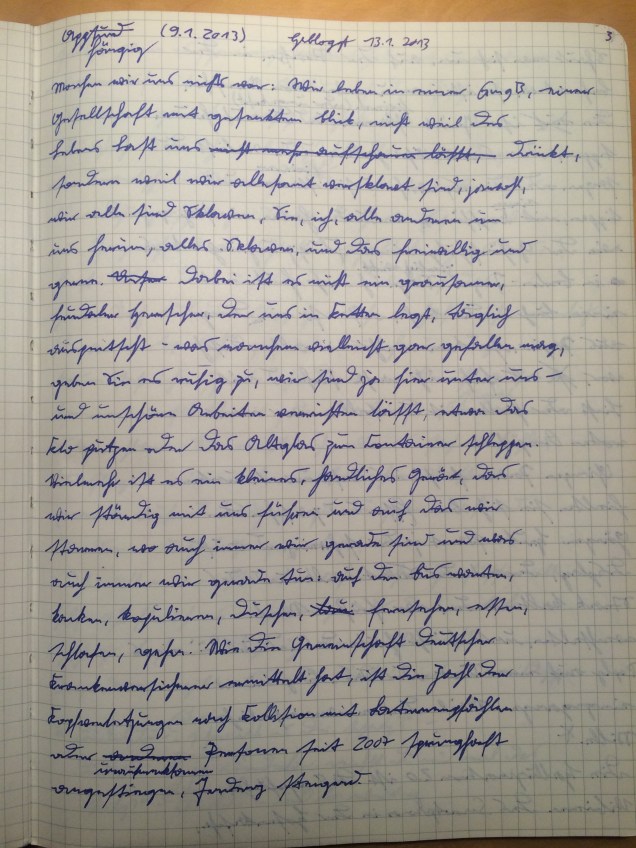 (9.1.2013) Gebloggt 13.1.2013 3
hängig
Machen wir uns nichts vor: Wir leben in einer GmgB, einer
Gesellschaft mit gesenktem Blick, nicht weil des
Lebens Last uns nicht mehr aufschauen lässt, drückt,
sondern weil wir allesamt versklavt sind, jawohl,
wir alle sind Sklaven, Sie, ich, alle anderen um
uns herum, alles Sklaven, und das freiwillig und
gerne. Dabei ist es nicht ein grausamer,
feudaler Herrscher, der uns in Ketten legt, täglich
auspeitscht – was manchem vielleicht gar gefallen mag,
geben Sie es ruhig zu, wir sind ja hier unter uns –
und unschöne Arbeiten verrichten lässt, etwa das
Klo putzen oder das Altglas zum Container schleppen.
Vielmehr ist es ein kleines, handliches Gerät, das
wir ständig mit uns führen und auf das wir
starren, wo auch immer wir gerade sind und was
auch immer wir gerade tun: auf den Bus warten,
kacken, kopulieren, duschen, fernsehen, essen,
schlafen, gehen. Wie die Gemeinschaft deutscher
Krankenversicherer ermittelt hat, ist die Zahl der
Kopfverletzungen nach Kollision mit Laternenpfählen
oder anderen Personen seit 2007 sprunghaft
unaufmerksamen
angestiegen, Tendenz steigend.